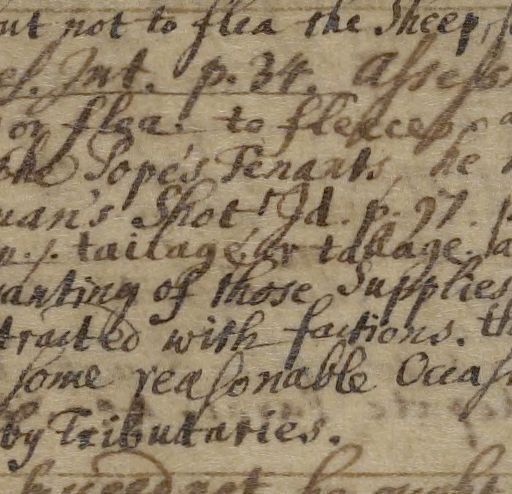 but not to flea the Sheep, 
es. Int. p. 34. Assess
or flea. to fleeces
the Pope's Tenants, he
uan's Shot. Id. p. 97.
n. /. tailage, or tallage.
anting of those Supplies
tracted with factions. th
some reasonable Occas
by Tributaries.